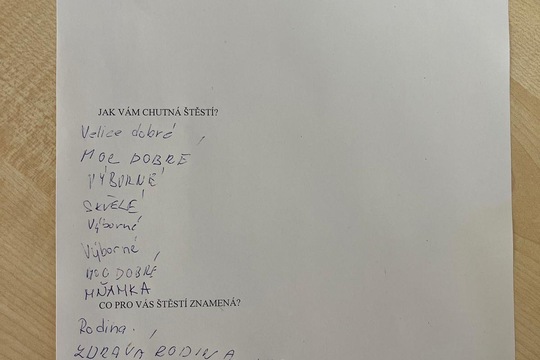 JAK VÁM CHUTNÁ ŠTĚSTÍ?
Velice dobré
MOC DOBRÉ
VÝBORNÉ
SKVĚLÉ
Výborné
Výborné
MOC DOBRÉ
MŇAMKA
CO PRO VÁS ŠTĚSTÍ ZNAMENÁ?
Rodina.
ZDRAVÁ RODINA